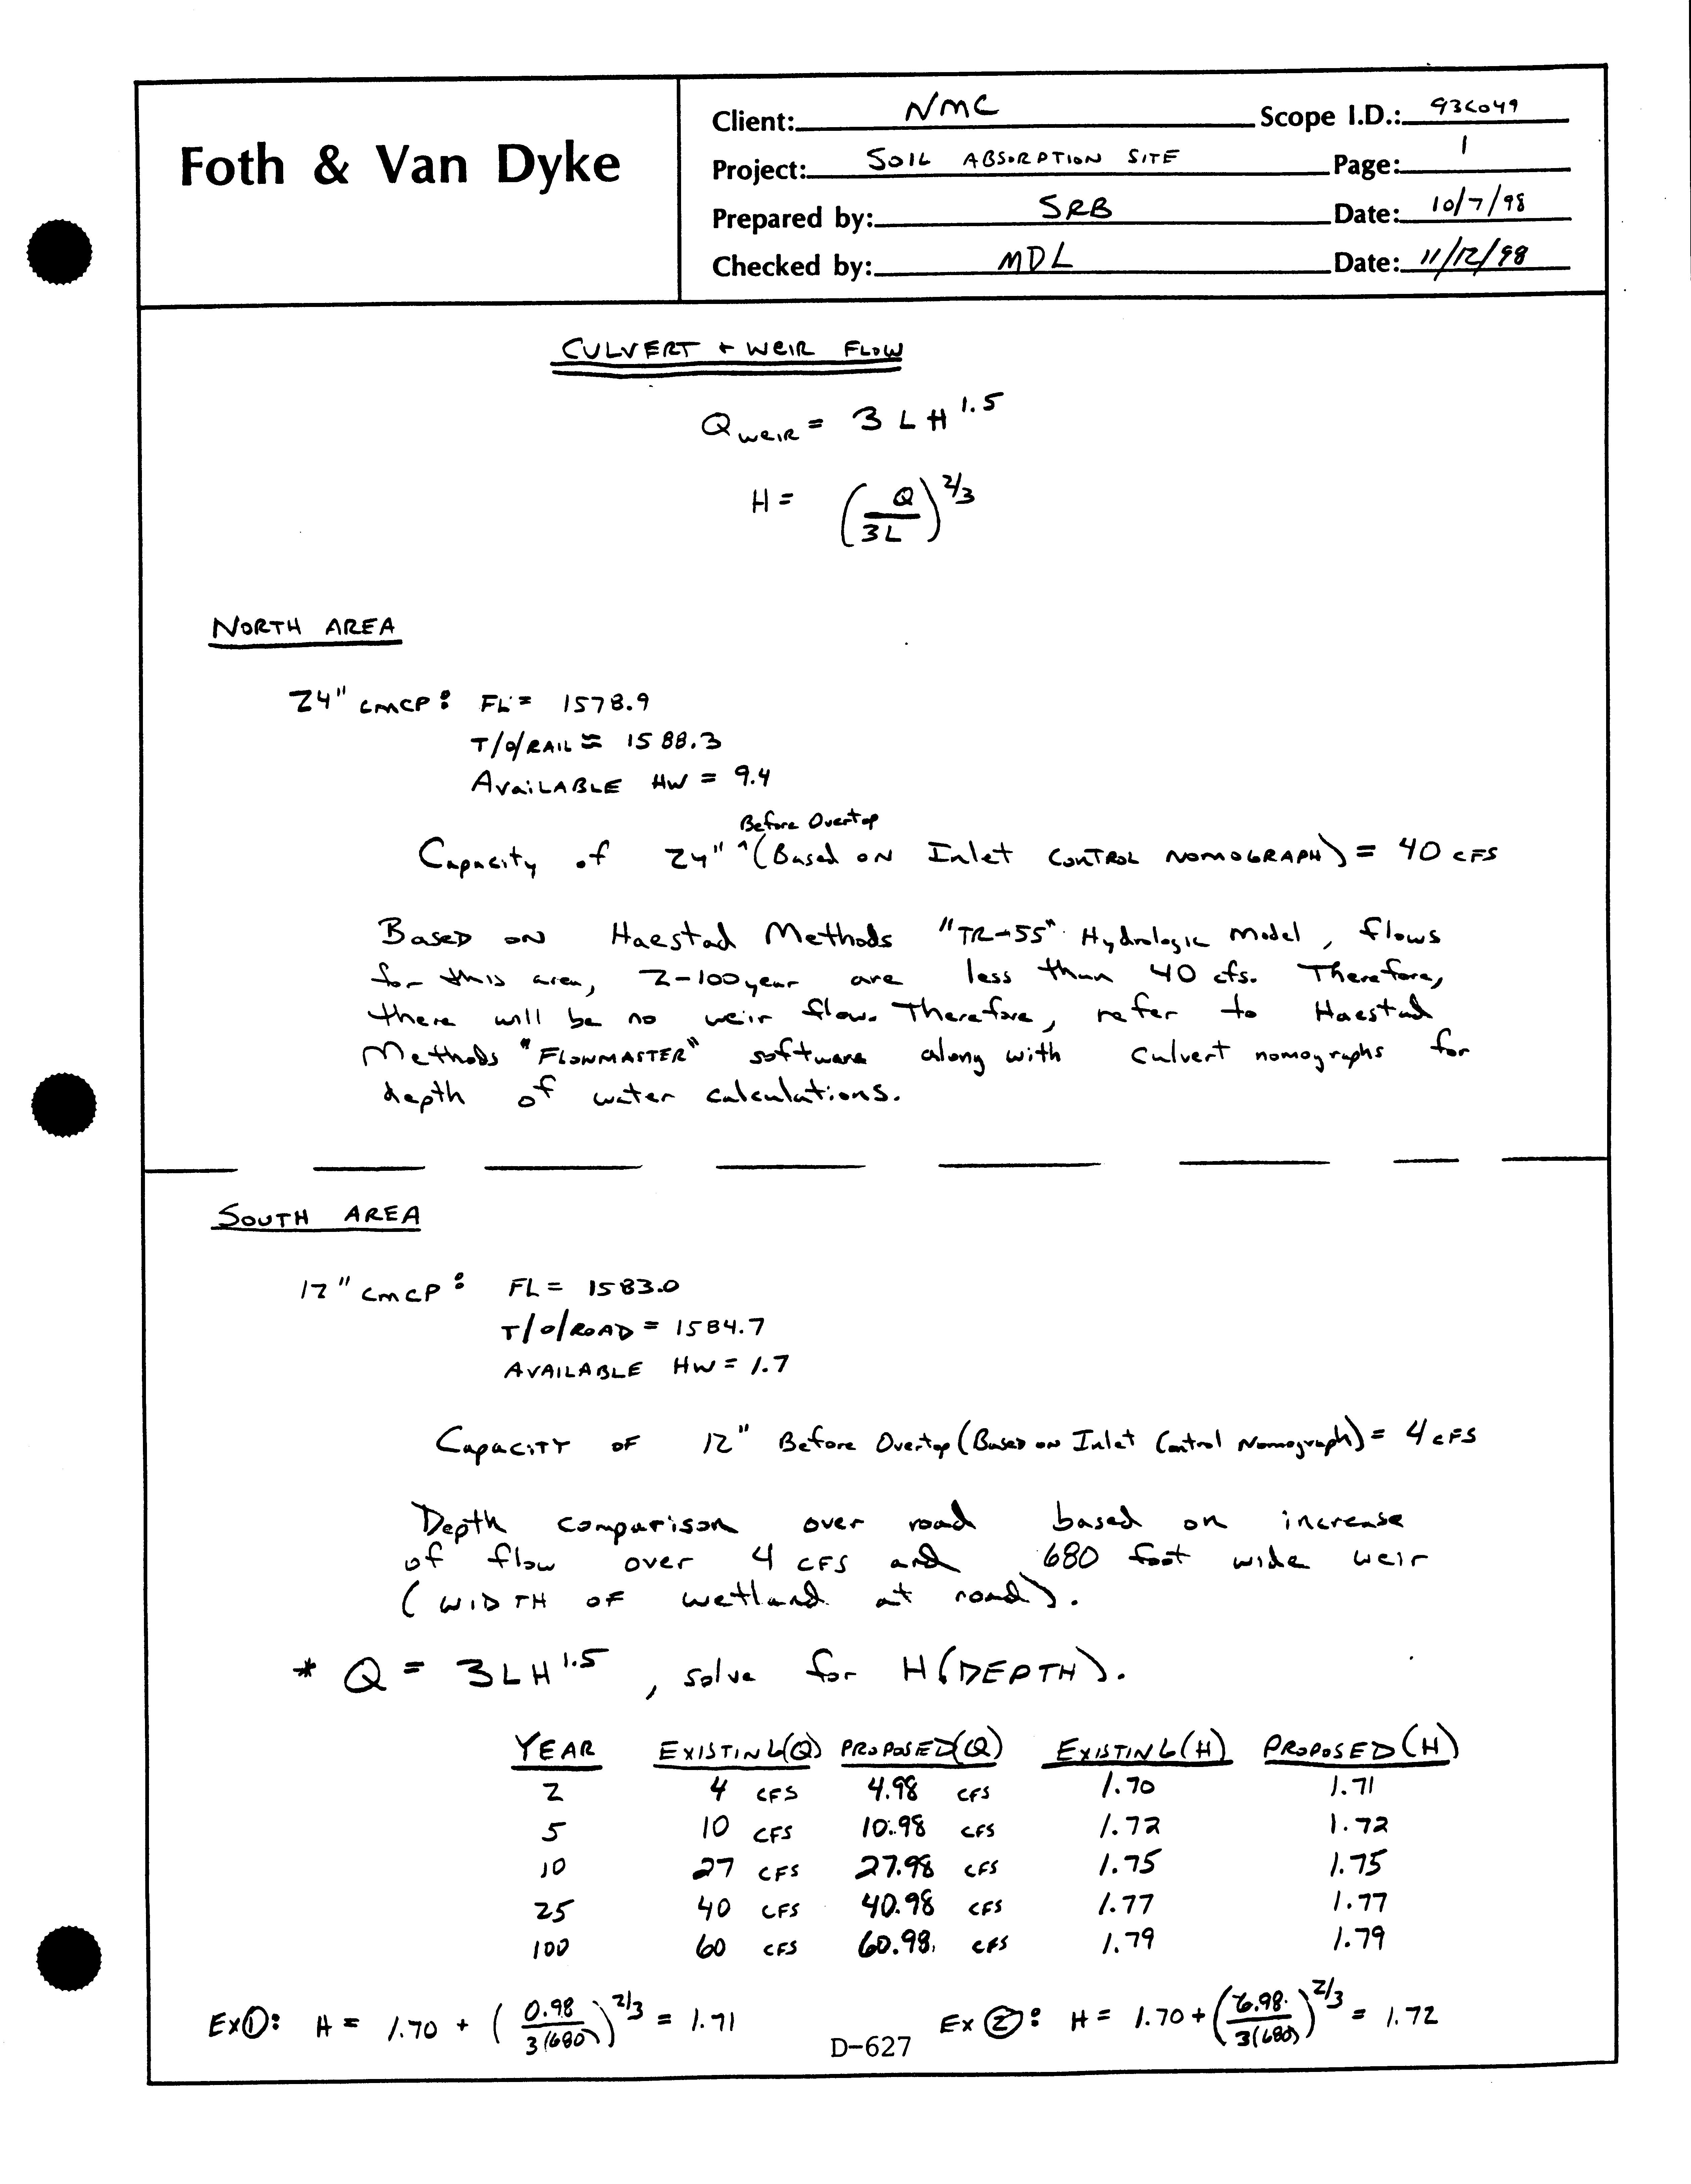 Foth & Van Dyke
Client: NMC Scope I.D.: 93C049
Project: SOIL ABSORPTION SITE Page: 1
Prepared by: SRB Date: 10/7/98
Checked by: MDL Date: 11/12/98
CULVERT + WEIR FLOW
Q WEIR = 3 L H^1.5
H = (Q/3L)^2/3
NORTH AREA
24" CMCP: FL = 1578.9
T/O/RAIL ≈ 1588.3
AVAILABLE HW = 9.4
Before Overtop
Capacity of 24" ^ (Based on Inlet CONTROL NOMOGRAPH) = 40 CFS
BASED ON Haestad Methods "TR-55" Hydrologic Model, flows
for this area, 2-100 year are less than 40 cfs. Therefore,
there will be no weir flow. Therefore, refer to Haestad
Methods "FLOWMASTER" software along with culvert nomographs for
depth of water calculations.
SOUTH AREA
12" CMCP: FL = 1583.0
T/O/ROAD = 1584.7
AVAILABLE HW = 1.7
CAPACITY OF 12" Before Overtop (Based on Inlet Control Nomograph) = 4 CFS
Depth comparison over road based on increase
of flow over 4 CFS and 680 foot wide weir
(WIDTH OF wetland at road).
* Q = 3LH^1.5, solve for H (DEPTH).
YEAR EXISTING(Q) PROPOSED(Q) EXISTING(H) PROPOSED(H)
2 4 CFS 4.98 CFS 1.70 1.71
5 10 CFS 10.98 CFS 1.72 1.72
10 27 CFS 27.98 CFS 1.75 1.75
25 40 CFS 40.98 CFS 1.77 1.77
100 60 CFS 60.98 CFS 1.79 1.79
EX①: H = 1.70 + (0.98/3(680))^2/3 = 1.71 EX②: H = 1.70 + (6.98/3(680))^2/3 = 1.72
D-627